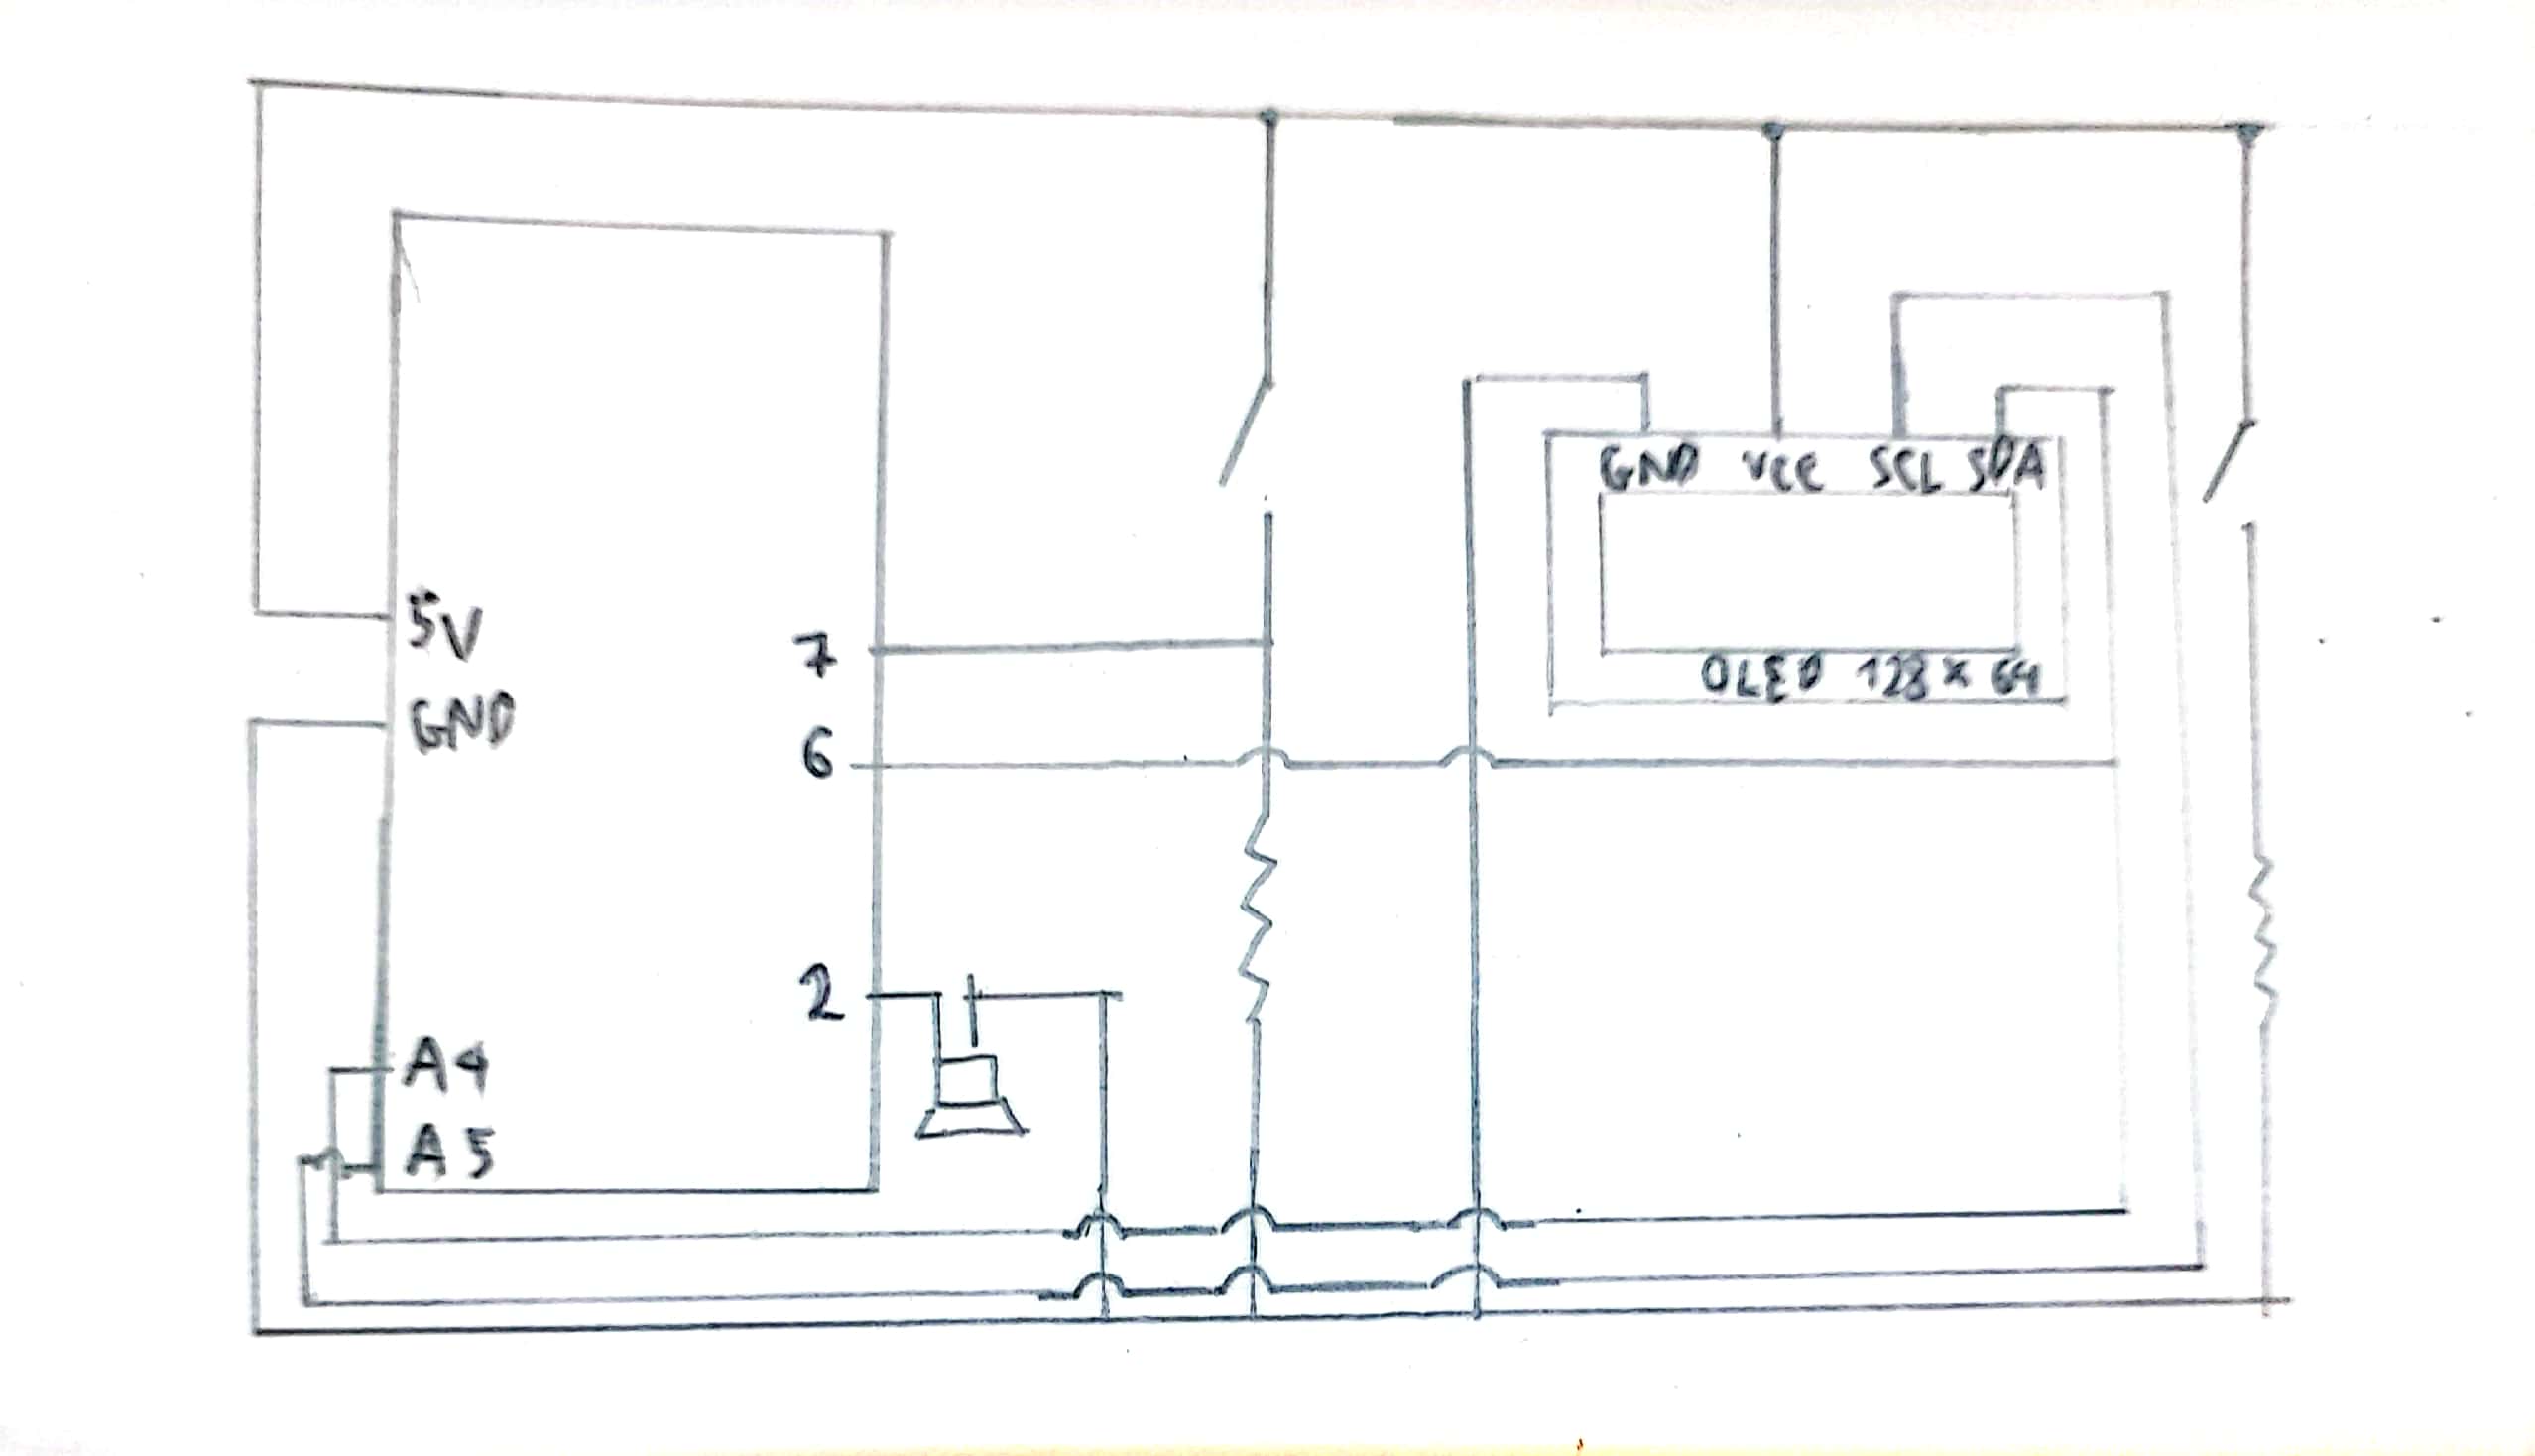 5V
GND
7
6
2
A4
A5
GND VCC SCL SDA
OLED 128 x 64